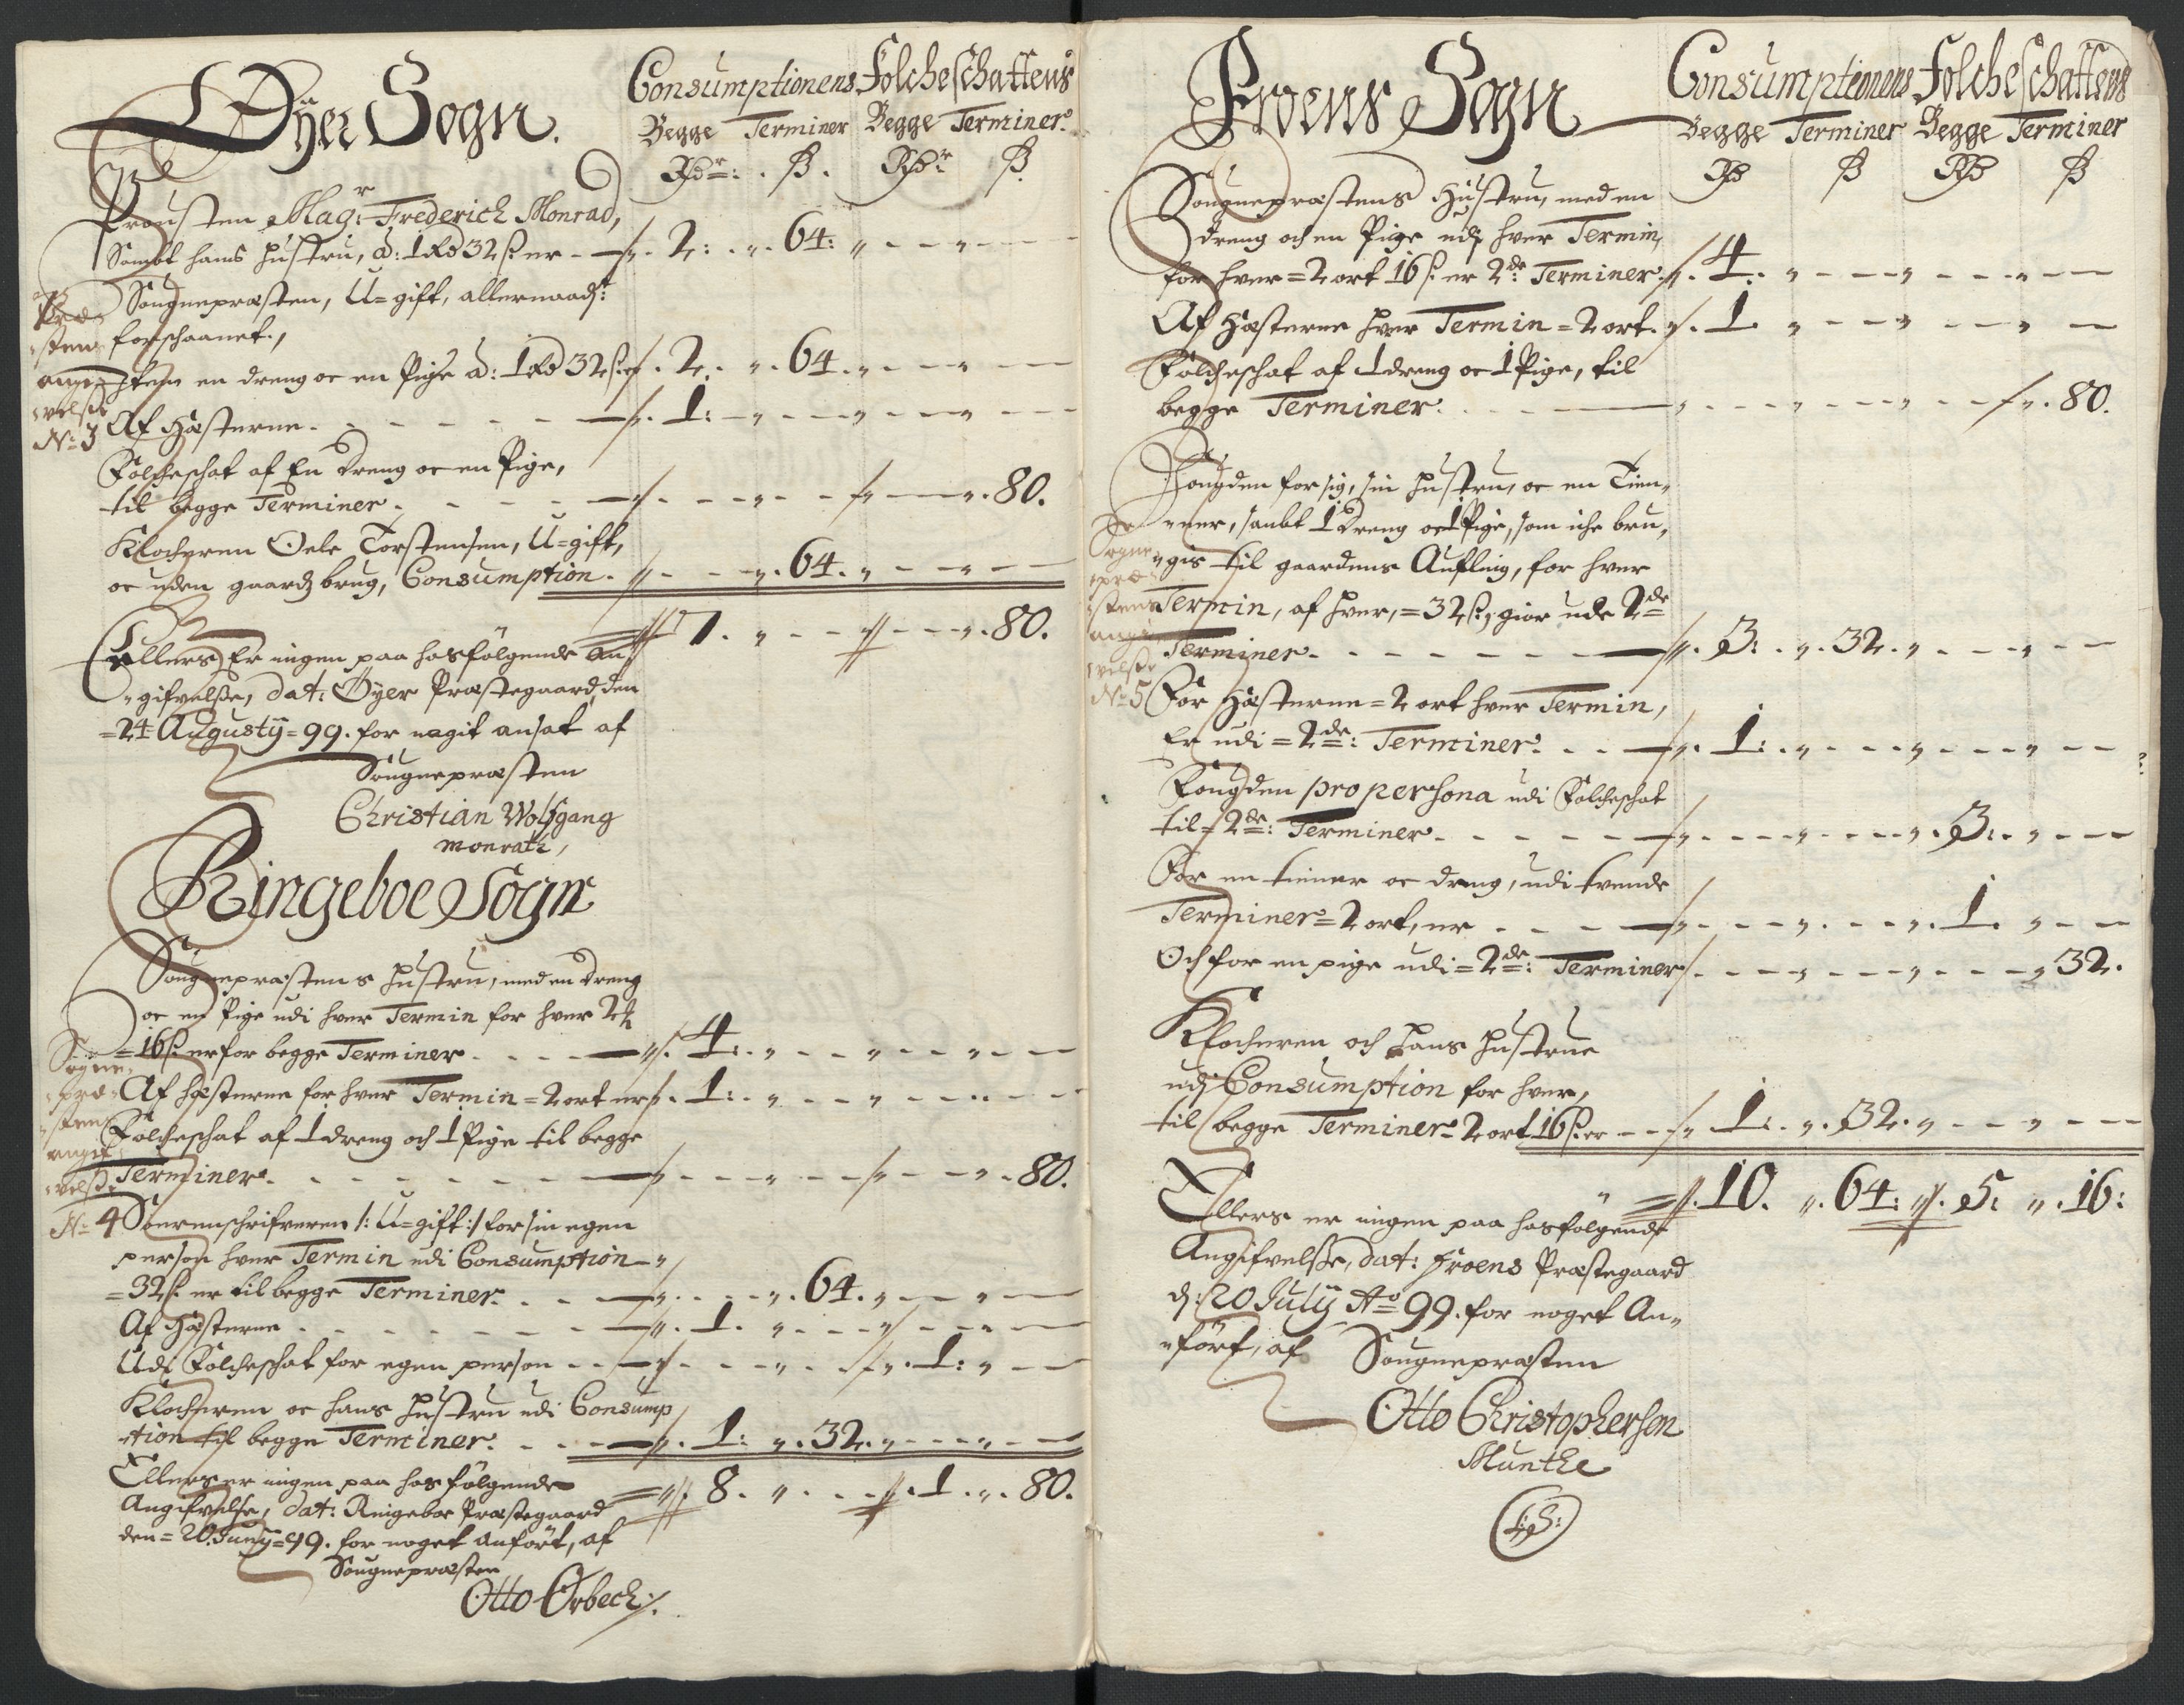 Øyer Sogn.
Consumptionens Folcheschattens
Begge Terminer Begge Terminer
Rdr: ß. Rdr ß.
Prousten Magr: Frederich Monrad,
Sambt hans hustru, â: 1 Rd 32 ß. er 2: 64:
Sougnepræsten, U=gift, allernaadst:
forschaanet.,
Item en dreng oc en Pige â: 1 Rd 32 ß. er 2. 64.
Af Hæsterne 1:
Folcheschat af En dreng oc en Pige,
til begge Terminer. 80.
Klocheren Oele Torstensen, U=gift,
oc uden gaardz brug, Consumption. 64.
7. 80.
Præ=
sten
angif
velße
No 3
Ellers Er ingen paa hosfölgende An=
gifvelße, dat: Öyer Præstegaard, den
=24 Augustij=99. for nogit ansat af
Sougnepræsten
Christian Wolfgang
Monrath,
Ringeboe Sogn
Sougnepræstens hustru, med en dreng
oc en Pige udi hver Termin for hver 2 ℔
=16 ß. er for begge Terminer 4:
Af hæsterne for hver Termin=2 ort er 1:
Folcheschat af 1 dreng och 1 Pige til begge
Terminer. 80.
Sogne
præ=
stens
angif
velße
No 4
Sorenschrifveren /: U=gift :/ for sin egen
person hver Termin udi Consumption
=32 ß. er til begge Terminer. 64.
Af Hæsterne 1.
Udi Folcheschat for egen person 1:
Klocheren oc hans hustru udi Consump
tion til begge Terminer. 1: 32.
Ellers er ingen paa hos fölgende
8. 1. 80.
Angifvelse, dat: Ringeboe Præstegaard
den=20. Junij=99. for noget anfört, af
Sougnepræsten
Otto Orbech/.
Froens Sogn
Consumptionens Folcheschattens
Begge Terminer Begge Terminer
Rd ß Rd ß
Sougnepræstens Hustru, med en
dreng och en Pige udj hver Termin,
for hver=2 ort 16 ß. er 2de: Terminer 4.
Af Hæsterne hver Termin=2 ort. 1
Folcheschat af 1 dreng oc 1 Pige, til
begge Terminer. 80.
Fougden for sig, sin hustru, oc en Tien,
ener, sambt 1 dreng oc 1 Pige, som iche bru,
gis til gaardens Aufling, for hver
Termin, af hver,=32 ß., giör udi 2de
Terminer. 3: 32.
Sogne
præ=
stens
angi
velße
No 5
For Hæsterne=2 ort hver Termin,
Er udi=2de: Terminer. 1:
Fougden pro persona udi Folcheschat
til=2de: Terminer. 3:
For en tiener oc dreng, udi tvende
Terminer=2 ort, er 1.
Och for en pige udi=2de: Terminer 32.
Klocheren och hans hustrue
udj Consumption for hver,
til begge Terminer 2 ort 16 ß. er 1. 32.
10. 64: 5: 16:
Ellers er ingen paa hosfölgende
Angifvelße, dat: Froens Præstegaard
d: 20 Julij Ao 99. for noget An,
fört, af Sougnepræsten
Otto Christopherson
Munthe
L:S: